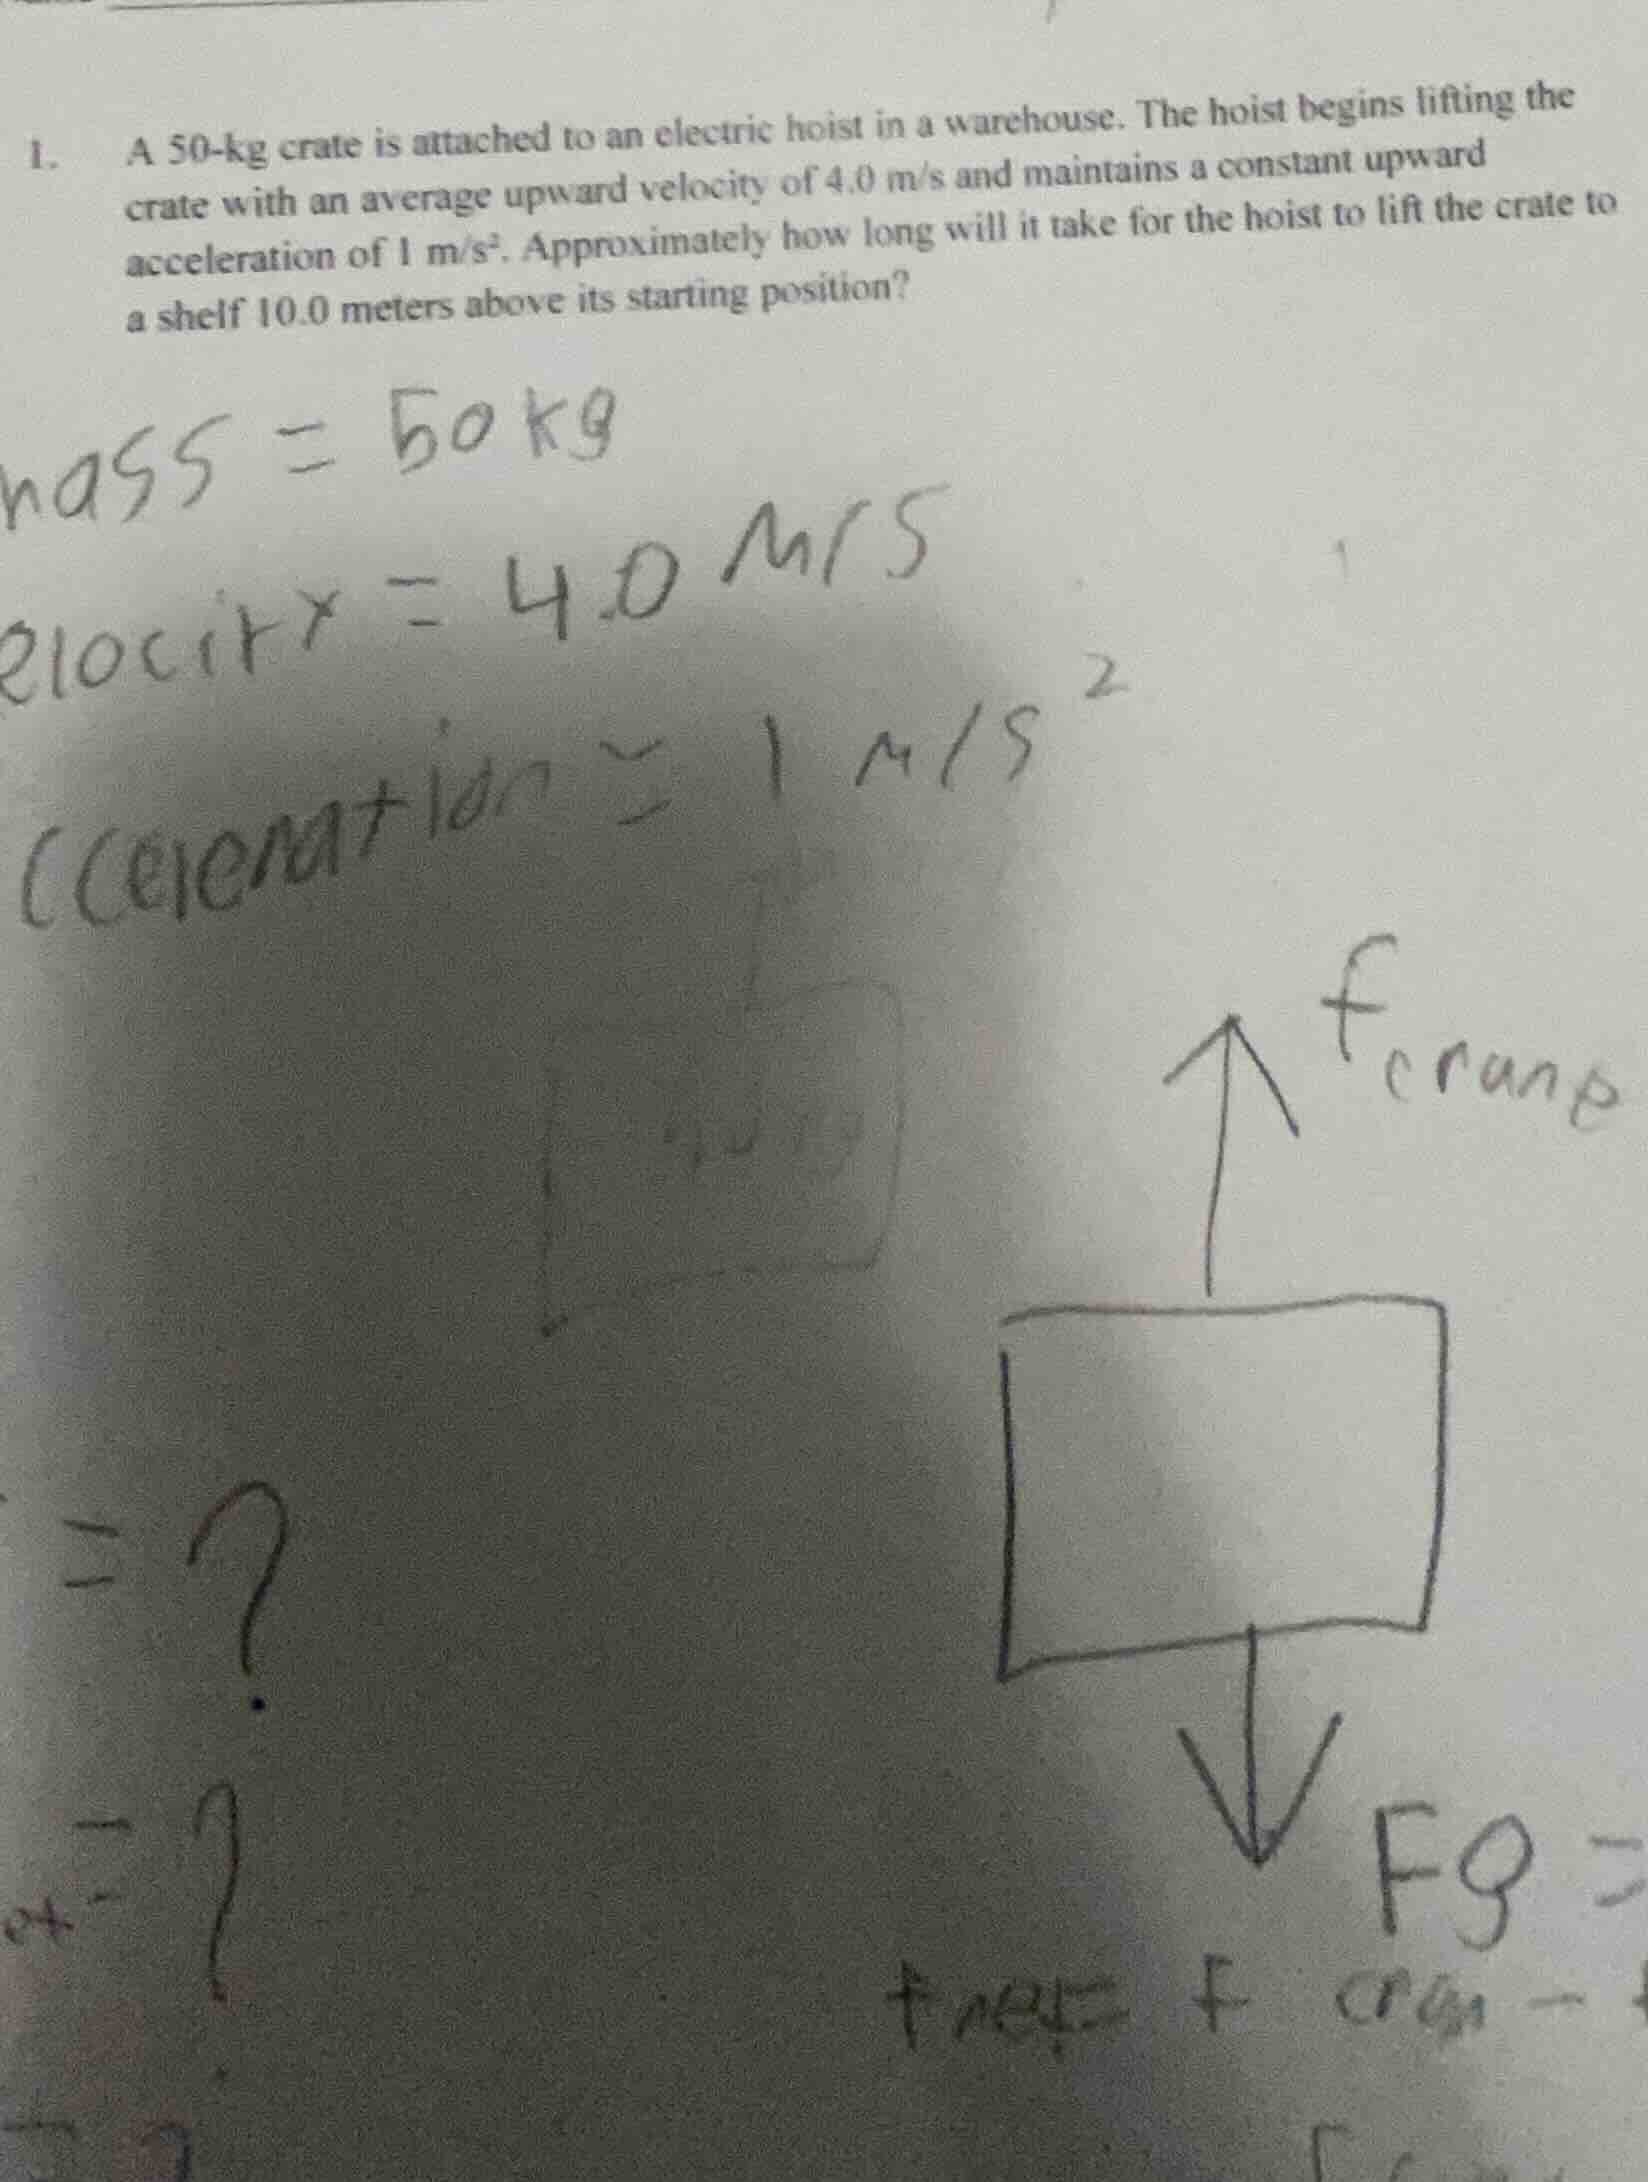 1. A 50-kg crate is attached to an electric hoist in a warehouse. The hoist begins lifting the
crate with an average upward velocity of 4.0 m/s and maintains a constant upward
acceleration of 1 m/s². Approximately how long will it take for the hoist to lift the crate to
a shelf 10.0 meters above its starting position?
mass = 50 kg
elocity = 4.0 m/s
cceleration = 1 m/s²
f crane
= ?
= ?
Fg =
fnet = F cran -
= ?